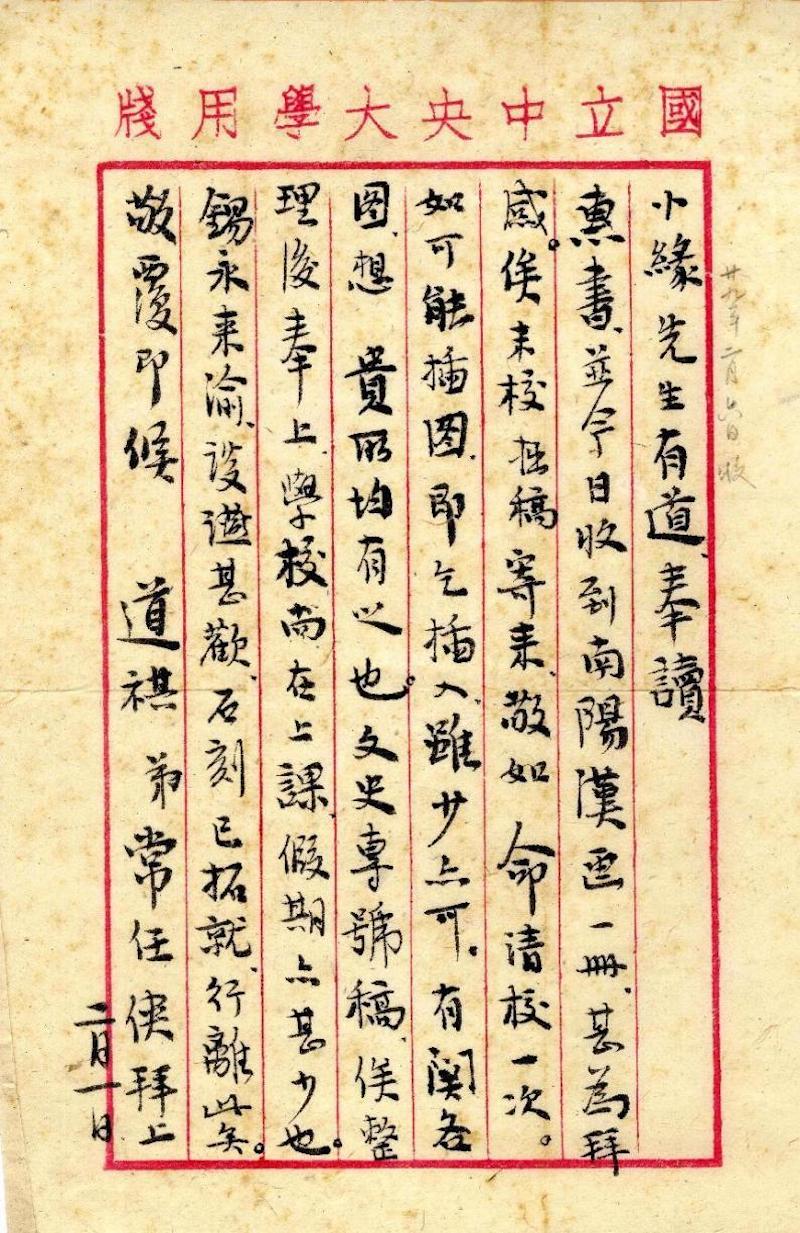 國立中央大學用牋
小緣先生有道、奉讀
惠書、並今日收到南陽漢画一冊、甚為拜
感。俟末校拙稿寄来、敬如 命清校一次。
如可能插图、即乞插入、雖少亦可。有関各
图、想 貴所均有之也。文史專號稿、俟整
理後奉上、學校尚在上課、假期亦甚少也。
錫永来渝、談讌甚歡、石刻已拓就、行離此矣。
敬覆即候 道祺 弟常任俠拜上
二月一日
廿九年二月六日收